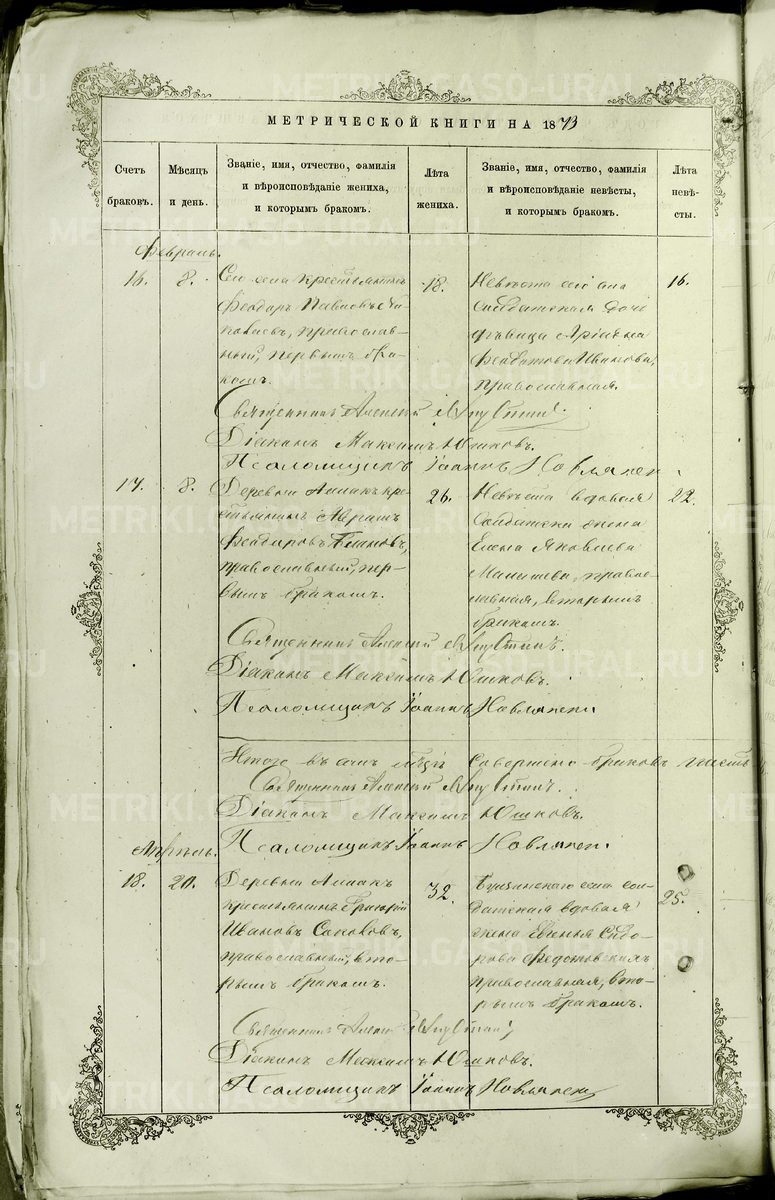 МЕТРИЧЕСКОЙ КНИГИ НА 1873
Счетъ браковъ.
Мѣсяцъ и день.
Званіе, имя, отчество, фамилія
и вѣроисповѣданіе жениха,
и которымъ бракомъ.
Лѣта жениха.
Званіе, имя, отчество, фамилія
и вѣроисповѣданіе невѣсты,
и которымъ бракомъ.
Лѣта невѣсты.
Февраль.
16.
8.
Сего села крестьянинъ
Феодоръ Павловъ
православный,
первымъ бракомъ.
18.
Невѣста сего села
Солдатская дочь
дѣвица
Иванова,
православная.
16.
Священникъ Алексей
Діаконъ Максимъ Юшковъ.
Псаломщикъ Іоаннъ
17.
8.
Деревни кре-
стьянинъ Аврамъ
Феодоровъ
православный, пер-
вымъ бракомъ.
26.
Невѣста вдовая
Солдатска жена
Елена Яковлева
правос-
лавная, вторымъ
бракомъ.
22.
Священникъ Алексей
Діаконъ Максимъ Юшковъ.
Псаломщикъ Іоаннъ
Итого въ семъ м-цѣ совершено браковъ шесть
Священникъ Алексей
Діаконъ Максимъ Юшковъ.
Псаломщикъ Іоаннъ
Апрѣль.
18.
20.
Деревни
крестьянинъ Григорій
Ивановъ Соколовъ,
православный, вто-
рымъ бракомъ.
32.
села сол-
датская вдовая
жена Евгенья Сидо-
рова
православная, вто-
рымъ бракомъ.
25.
Священникъ
Діаконъ Максимъ Юшковъ.
Псаломщикъ Іоаннъ
METRIKI.GASO-URAL.RU